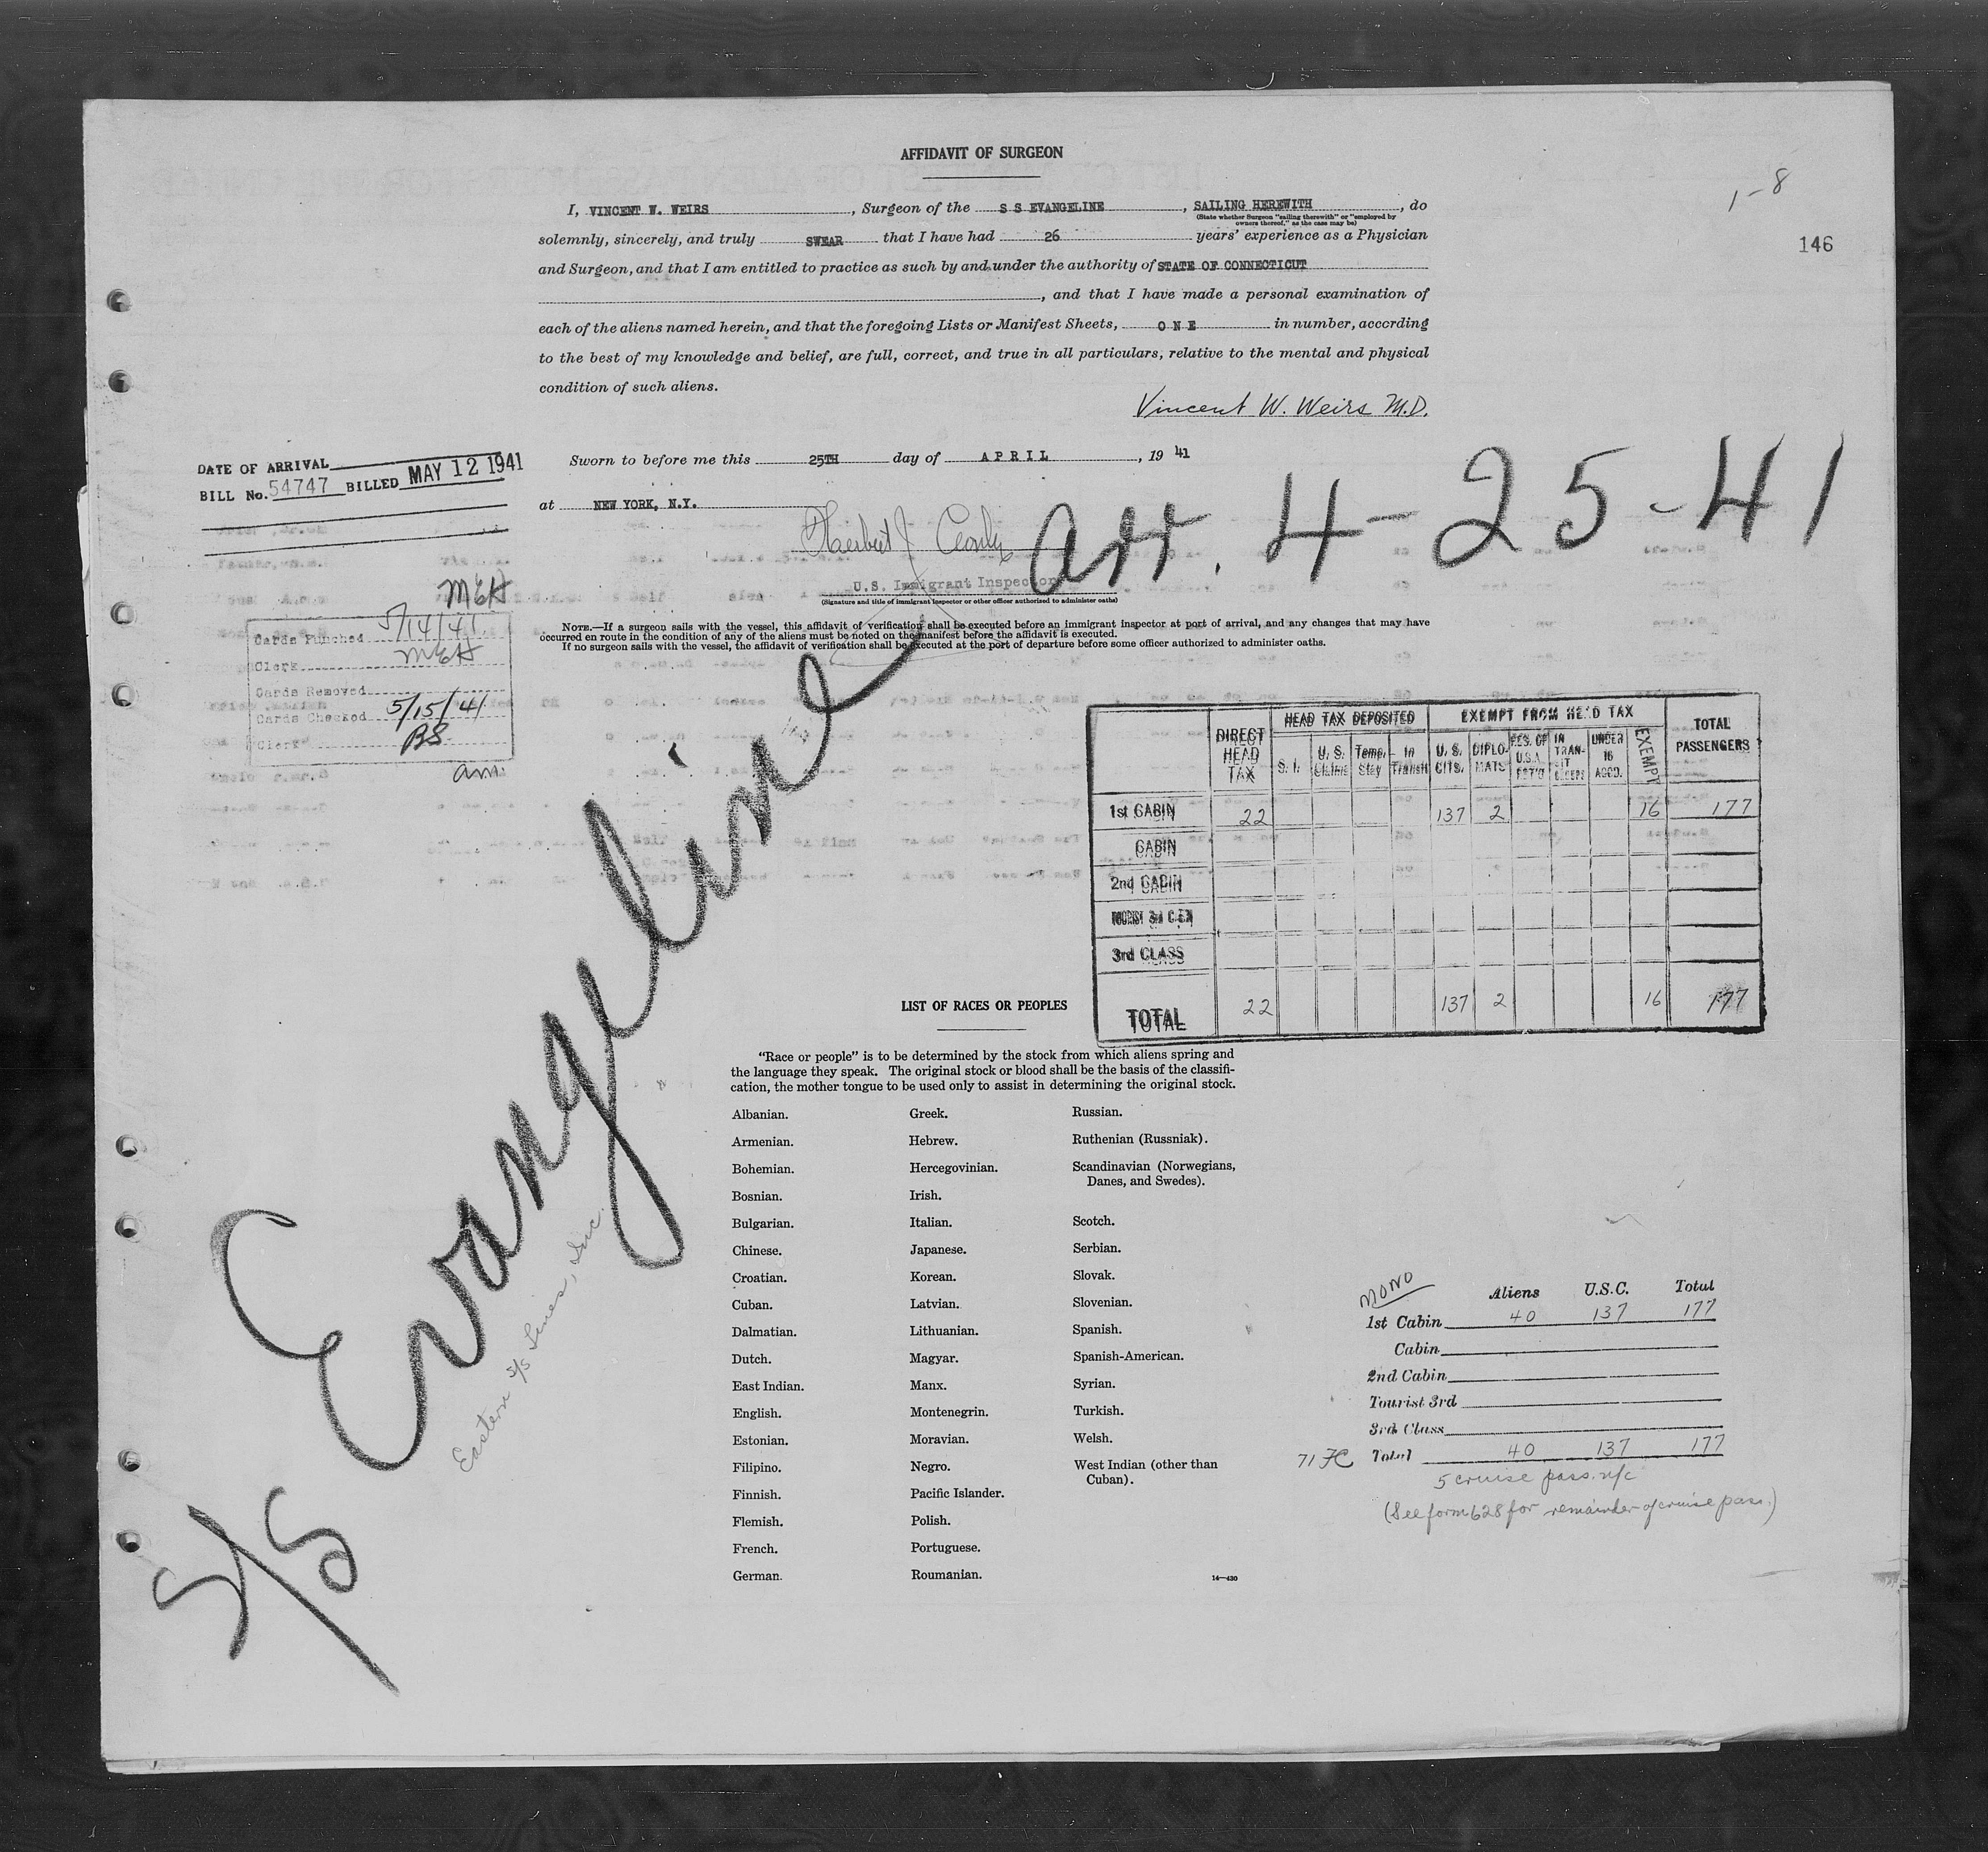 AFFIDAVIT OF SURGEON
1-8
146
I, VINCENT W. WEIRS, Surgeon of the S S EVANGELINE, SAILING HEREWITH, do
(State whether Surgeon "sailing therewith" or "employed by
owners thereof," as the case may be)
solemnly, sincerely, and truly SWEAR that I have had 26 years' experience as a Physician
and Surgeon, and that I am entitled to practice as such by and under the authority of STATE OF CONNECTICUT
, and that I have made a personal examination of
each of the aliens named herein, and that the foregoing Lists or Manifest Sheets, ONE in number, according
to the best of my knowledge and belief, are full, correct, and true in all particulars, relative to the mental and physical
condition of such aliens.
Vincent W. Weirs M.D.
DATE OF ARRIVAL
BILL No. 54747 BILLED MAY 12 1941
Sworn to before me this 25TH day of APRIL, 19 41
at NEW YORK, N.Y.
Arr. 4-25-41
U.S. Immigrant Inspector
(Signature and title of immigrant inspector or other officer authorized to administer oaths)
NOTE.—If a surgeon sails with the vessel, this affidavit of verification shall be executed before an immigrant inspector at port of arrival, and any changes that may have
occurred en route in the condition of any of the aliens must be noted on the manifest before the affidavit is executed.
If no surgeon sails with the vessel, the affidavit of verification shall be executed at the port of departure before some officer authorized to administer oaths.
MEH
Cards Punched 5/14/41
Clerk MEH
Cards Removed
Cards Checked 5/15/41
Clerk BS
am.
S/S Evangeline
Eastern S/S Lines, Inc.
DIRECT HEAD TAX
HEAD TAX DEPOSITED
EXEMPT FROM HEAD TAX
TOTAL PASSENGERS
S. I.
U. S. Claims
Temp. Stay
In Transit
U. S. CITS.
DIPLO-MATS
RES. OF U.S.A. RET'G
IN TRAN-SIT
UNDER 16 ACCD.
EXEMPT
1st CABIN 22 137 2 16 177
CABIN
2nd CABIN
TOURIST 3rd
3rd CLASS
TOTAL 22 137 2 16 177
LIST OF RACES OR PEOPLES
"Race or people" is to be determined by the stock from which aliens spring and
the language they speak. The original stock or blood shall be the basis of the classifi-
cation, the mother tongue to be used only to assist in determining the original stock.
Albanian.
Armenian.
Bohemian.
Bosnian.
Bulgarian.
Chinese.
Croatian.
Cuban.
Dalmatian.
Dutch.
East Indian.
English.
Estonian.
Filipino.
Finnish.
Flemish.
French.
German.
Greek.
Hebrew.
Hercegovinian.
Irish.
Italian.
Japanese.
Korean.
Latvian.
Lithuanian.
Magyar.
Manx.
Montenegrin.
Moravian.
Negro.
Pacific Islander.
Polish.
Portuguese.
Roumanian.
Russian.
Ruthenian (Russniak).
Scandinavian (Norwegians,
Danes, and Swedes).
Scotch.
Serbian.
Slovak.
Slovenian.
Spanish.
Spanish-American.
Syrian.
Turkish.
Welsh.
West Indian (other than
Cuban).
14—430
MONO
Aliens U.S.C. Total
1st Cabin 40 137 177
Cabin
2nd Cabin
Tourist 3rd
3rd Class
71 FC Total 40 137 177
5 cruise pass. n/c
(See form 628 for remainder of cruise pass.)